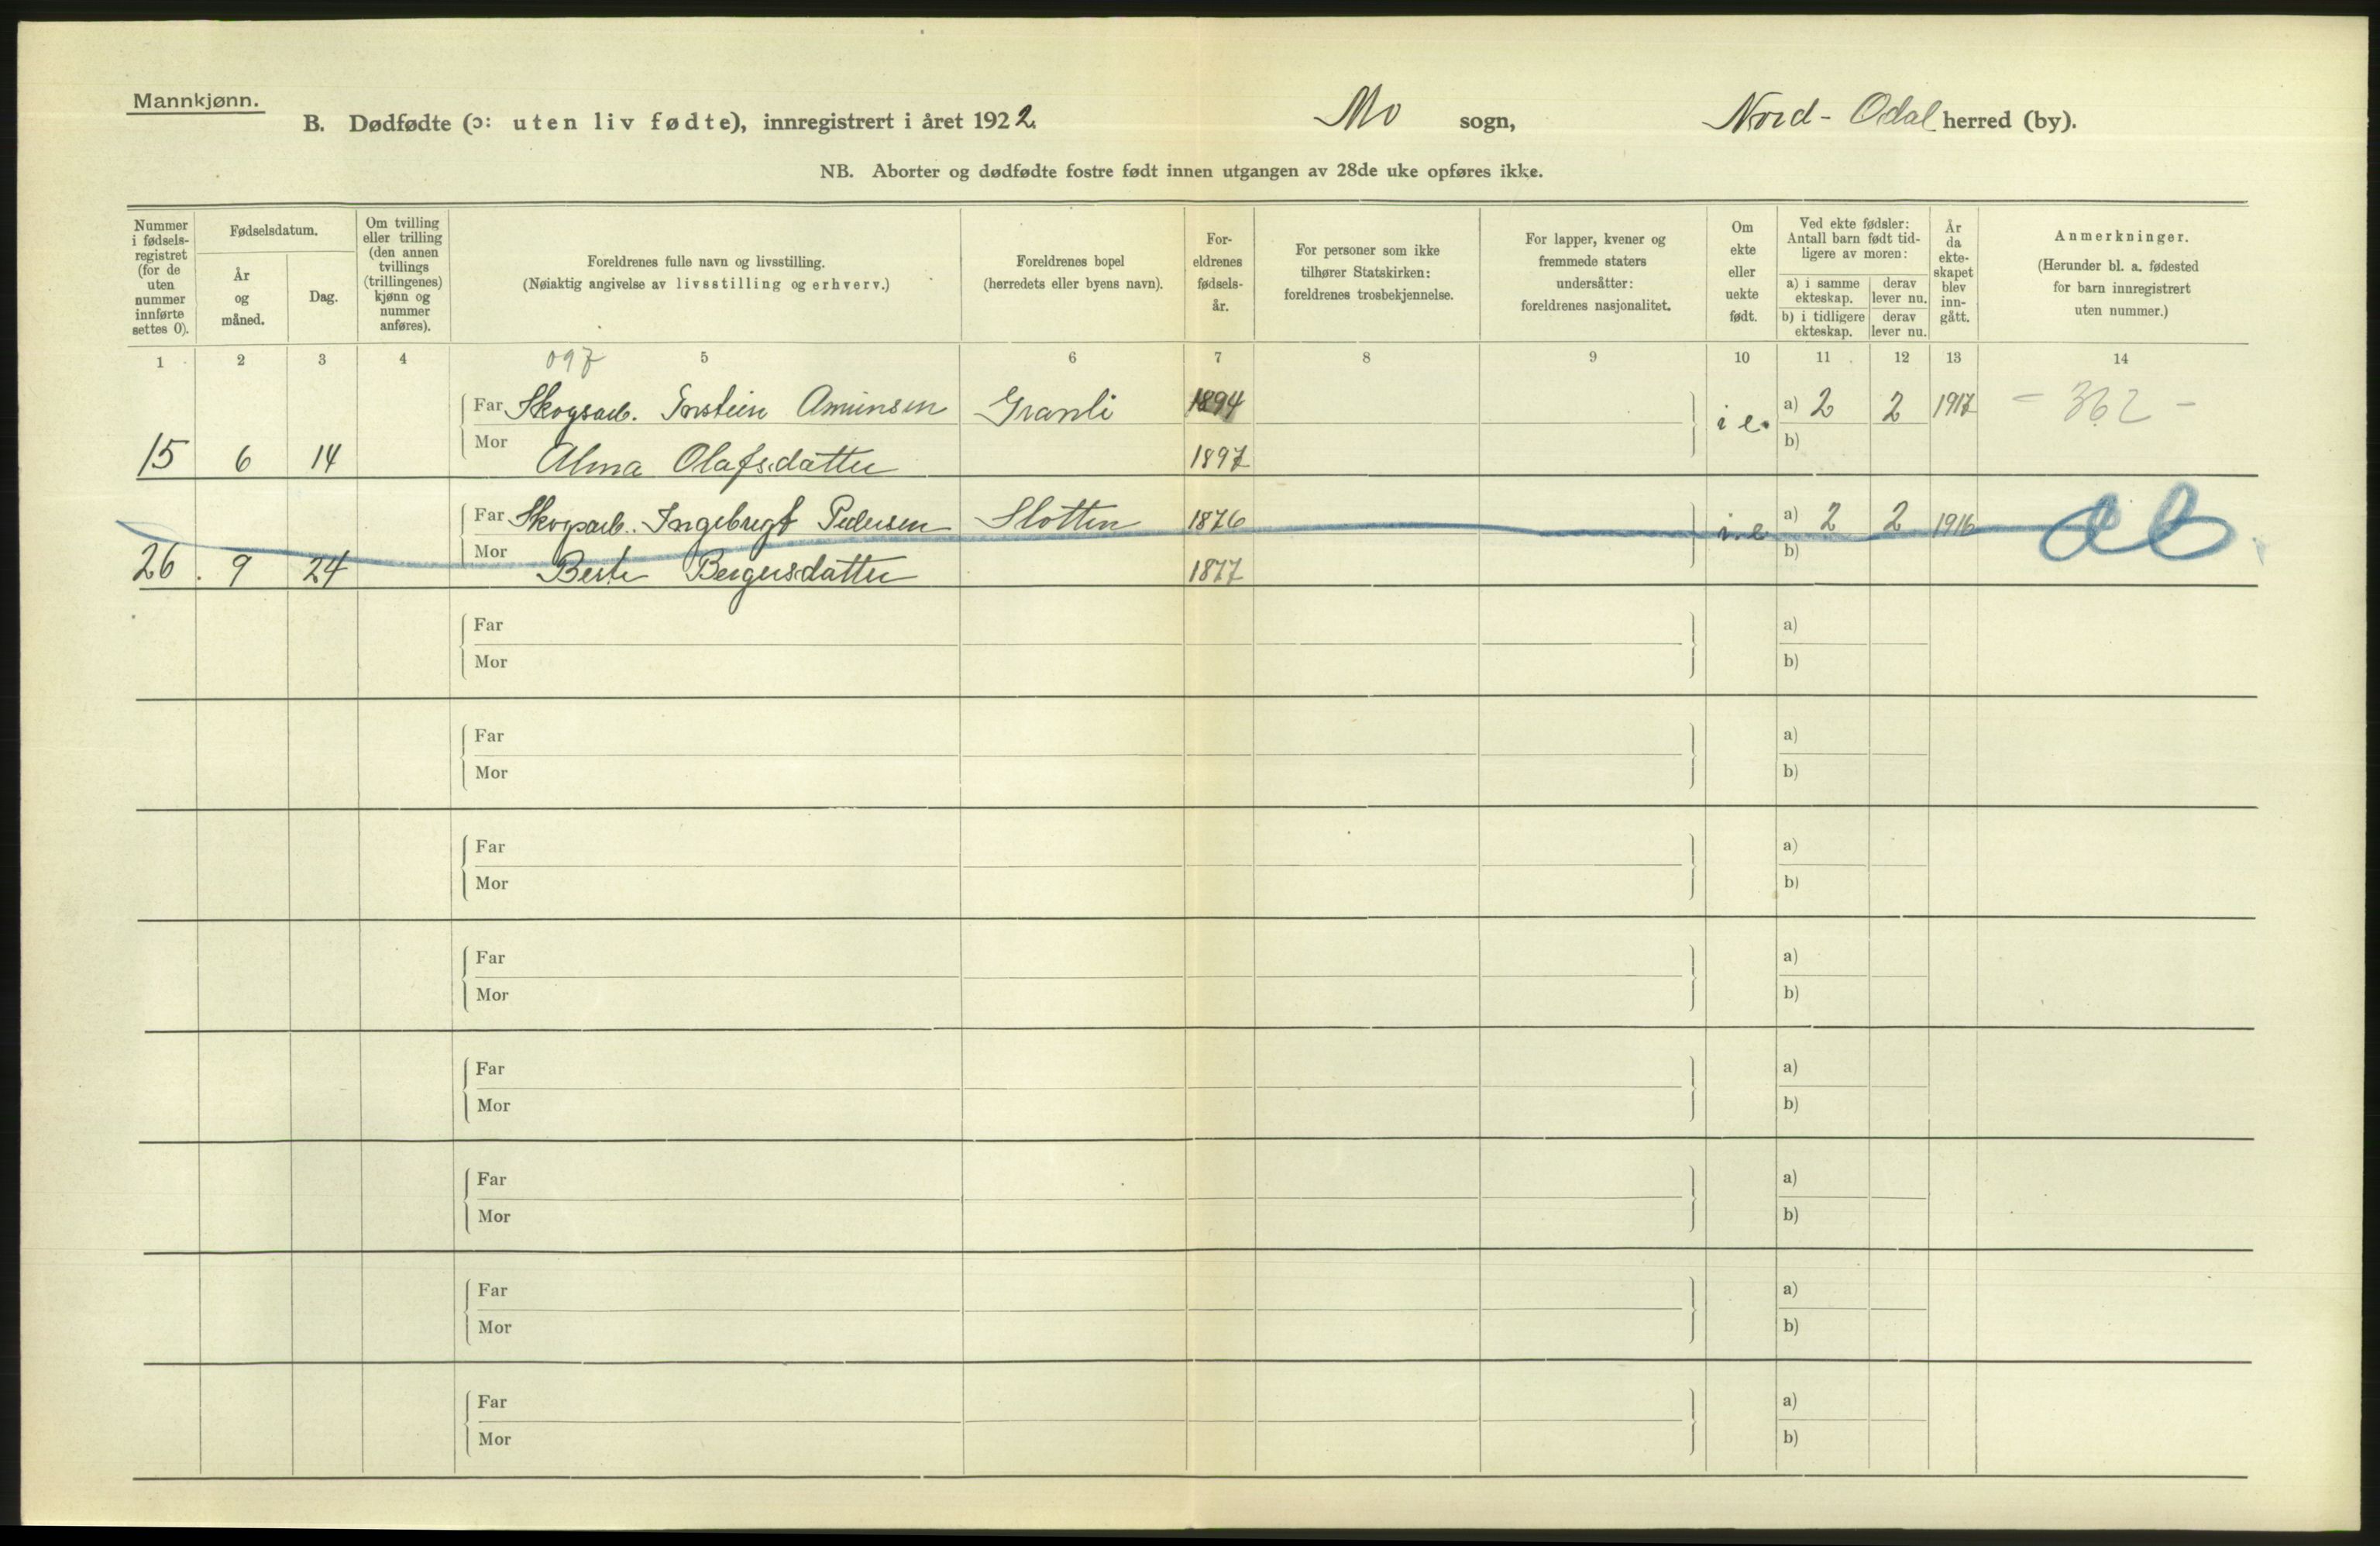 Mannkjønn.
B. Dødfødte (ɔ: uten liv fødte), innregistrert i året 1922. Mo sogn, Nord-Odal herred (by).
NB. Aborter og dødfødte fostre født innen utgangen av 28de uke opføres ikke.
Nummer i fødsels-registret (for de uten nummer innførte settes 0).
Fødselsdatum.
År og måned.
Dag.
Om tvilling eller trilling (den annen tvillings (trillingenes) kjønn og nummer anføres).
Foreldrenes fulle navn og livsstilling.
(Nøiaktig angivelse av livsstilling og erhverv.)
Foreldrenes bopel
(herredets eller byens navn).
For-eldrenes fødsels-år.
For personer som ikke tilhører Statskirken: foreldrenes trosbekjennelse.
For lapper, kvener og fremmede staters undersåtter: foreldrenes nasjonalitet.
Om ekte eller uekte født.
Ved ekte fødsler: Antall barn født tid-ligere av moren:
a) i samme ekteskap.
derav lever nu.
b) i tidligere ekteskap.
derav lever nu.
År da ekte-skapet blev inn-gått.
Anmerkninger.
(Herunder bl. a. fødested for barn innregistrert uten nummer.)
1 2 3 4 097 5 6 7 8 9 10 11 12 13 14
Far Skogsarb. Torstein Amunsen Granli 1894 i e. a) 2 2 1917 - 362 -
15 6 14 Mor Alma Olafsdatter 1897 b)
Far Skogsarb. Ingebrigt Pedersen Slotten 1876 i. e a) 2 2 1916
26. 9 24 Mor Berte Bergersdatter 1877 b)
Far a)
Mor b)
Far a)
Mor b)
Far a)
Mor b)
Far a)
Mor b)
Far a)
Mor b)
Far a)
Mor b)
Far a)
Mor b)
Far a)
Mor b)